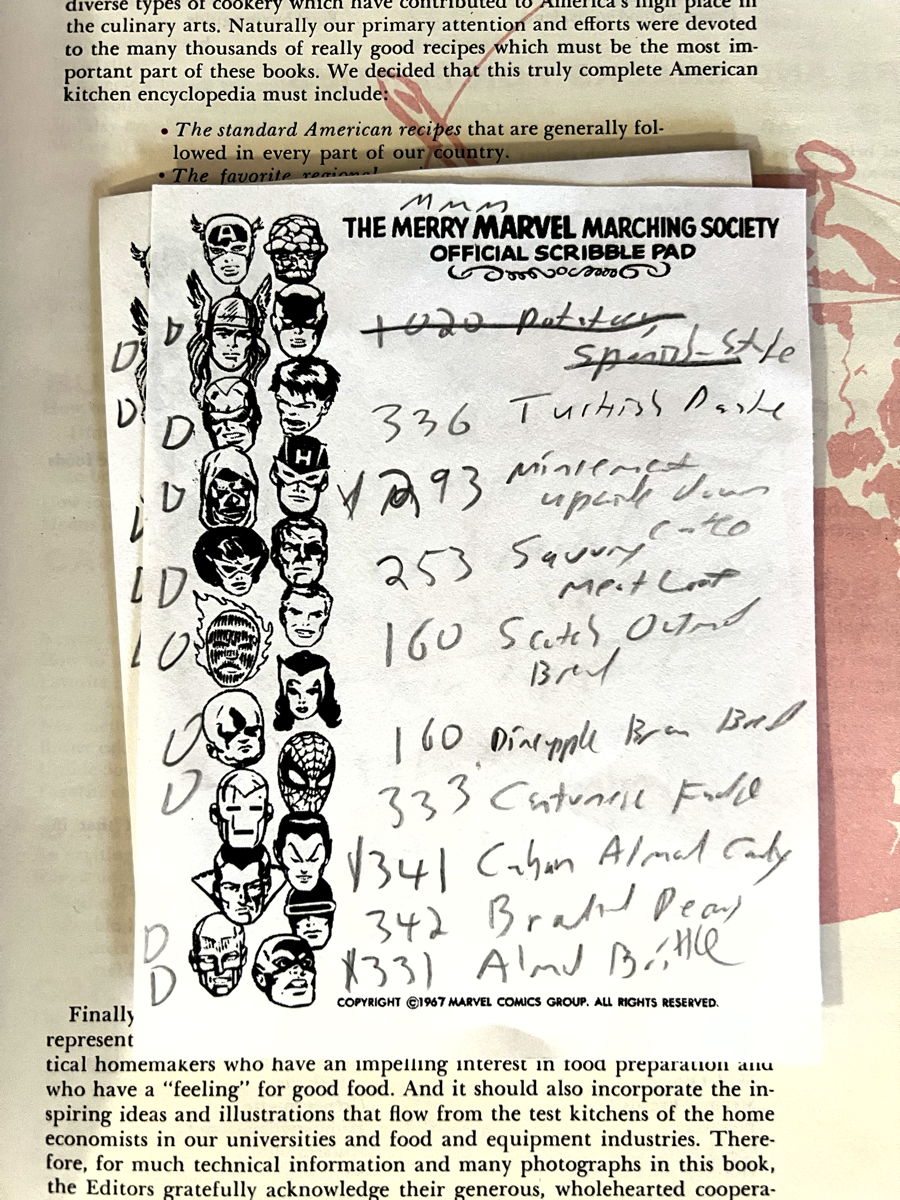 diverse types of cookery which have contributed to America's high place in
the culinary arts. Naturally our primary attention and efforts were devoted
to the many thousands of really good recipes which must be the most im-
portant part of these books. We decided that this truly complete American
kitchen encyclopedia must include:
• The standard American recipes that are generally fol-
lowed in every part of our country.
• The favorite regional
THE MERRY MARVEL MARCHING SOCIETY
OFFICIAL SCRIBBLE PAD
A
H
D
D
D
D
D
D
D
D
D
D
1020
Spanish Style
336 Turkish Paste
293 Mincemeat
upside down
253 Savory
Meat Loaf
160 Scotch Oatmeal
Bread
160 Pineapple Bran Bread
333 Fudge
341 Almond Candy
342
331 Almond Brittle
COPYRIGHT ©1967 MARVEL COMICS GROUP. ALL RIGHTS RESERVED.
Finally
represent
tical homemakers who have an impelling interest in food preparation and
who have a "feeling" for good food. And it should also incorporate the in-
spiring ideas and illustrations that flow from the test kitchens of the home
economists in our universities and food and equipment industries. There-
fore, for much technical information and many photographs in this book,
the Editors gratefully acknowledge their generous, wholehearted coopera-